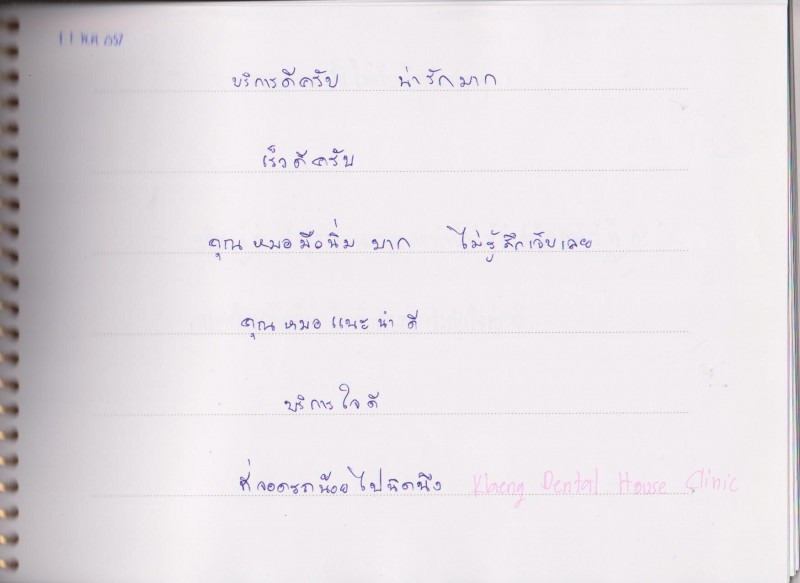 11 พ.ค 2557
บริการดีครับ น่ารักมาก
เร็วดีครับ
คุณหมอมือนิ่มมาก ไม่รู้สึกเจ็บเลย
คุณหมอแนะนำดี
บริการใจดี
ที่จอดรถน้อยไปนิดนึง Klaeng Dental House Clinic